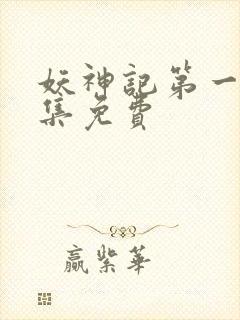 妖神記第一
集免費
贏紫華